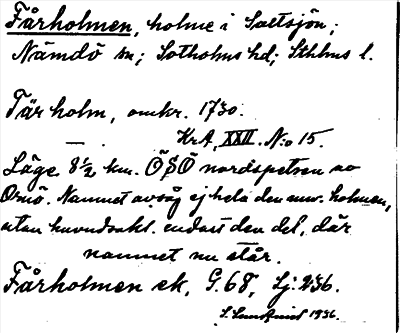 Fårholmen, holme i Saltsjön;
Nämdö sn; Sotholms hd; Sthlms l.
Fårholm, omkr. 1730.
KrA, XXII. N:o 15.
Läge 8½ km. ÖSÖ nordspetsen av
Ornö. Namnet avsåg ej hela den nuv. holmen,
utan huvudsakl. endast den del, där
namnet nu står.
Fårholmen ek, G.68, Lj. 236.
S. Lundquist 1936.